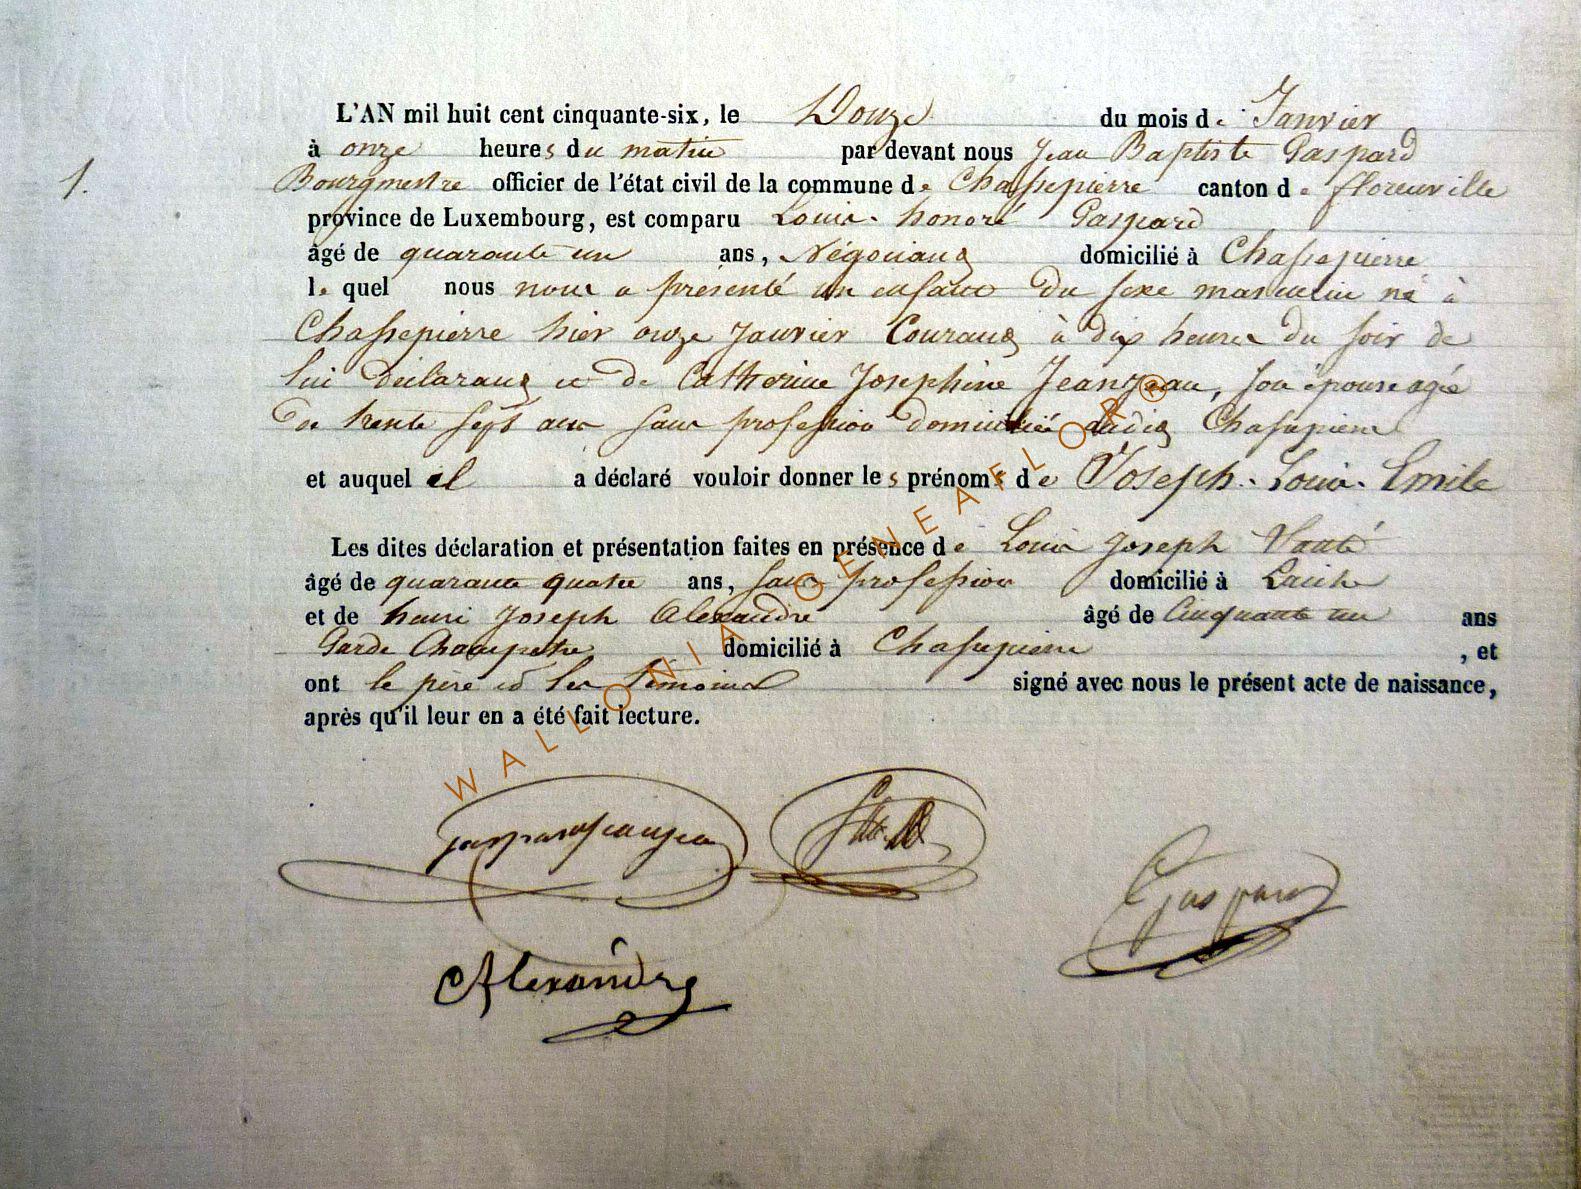 L'AN mil huit cent cinquante-six, le Douze du mois de Janvier
1. à onze heures du matin par devant nous Jean Baptiste Gaspard
Bourgmestre officier de l'état civil de la commune de Chassepierre canton de florenville
province de Luxembourg, est comparu Louis honoré Gaspard
âgé de quarante un ans, Négociant domicilié à Chassepierre
le quel nous nous a présenté un enfant du sexe masculin né à
Chassepierre hier onze Janvier Courant à dix heures du soir de
lui déclarant et de Catherine Josephine Jeanjean, son épouse agée
de trente sept ans sans profession domiciliée audit Chassepierre
et auquel il a déclaré vouloir donner les prénoms de Joseph Louis Emile
Les dites déclaration et présentation faites en présence de Louis Joseph
âgé de quarante quatre ans, sans profession domicilié à Laiche
et de henri Joseph Alexandre âgé de Cinquante un ans
Garde Champetre domicilié à Chassepierre , et
ont le père et les témoins signé avec nous le présent acte de naissance,
après qu'il leur en a été fait lecture.
WALLONIA GENEAFLOR®
gaspardjeanjean
Gaspard
Alexandre